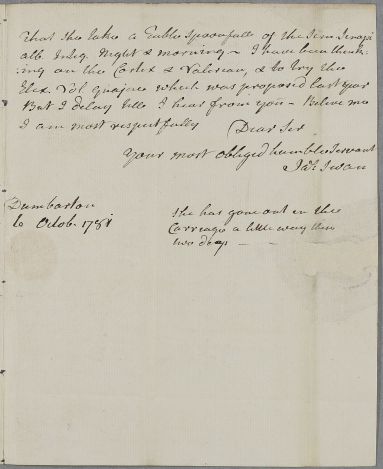 That She take a Table Spoonfull of the Sem: Sinapi
alb. Integ. Night & morning - I have been think-
ing on the Cortex & Valerian, & to try the
Elix. Vol. guajac which was proposed last year
But I delay till I hear from you - Believe me
I am most respectfully Dear Sir
Your most obliged humble Servant
Jas: Swan
Dumbarton
6 Octob. 1781
She has gone out in the
Carriage a little way these
two days